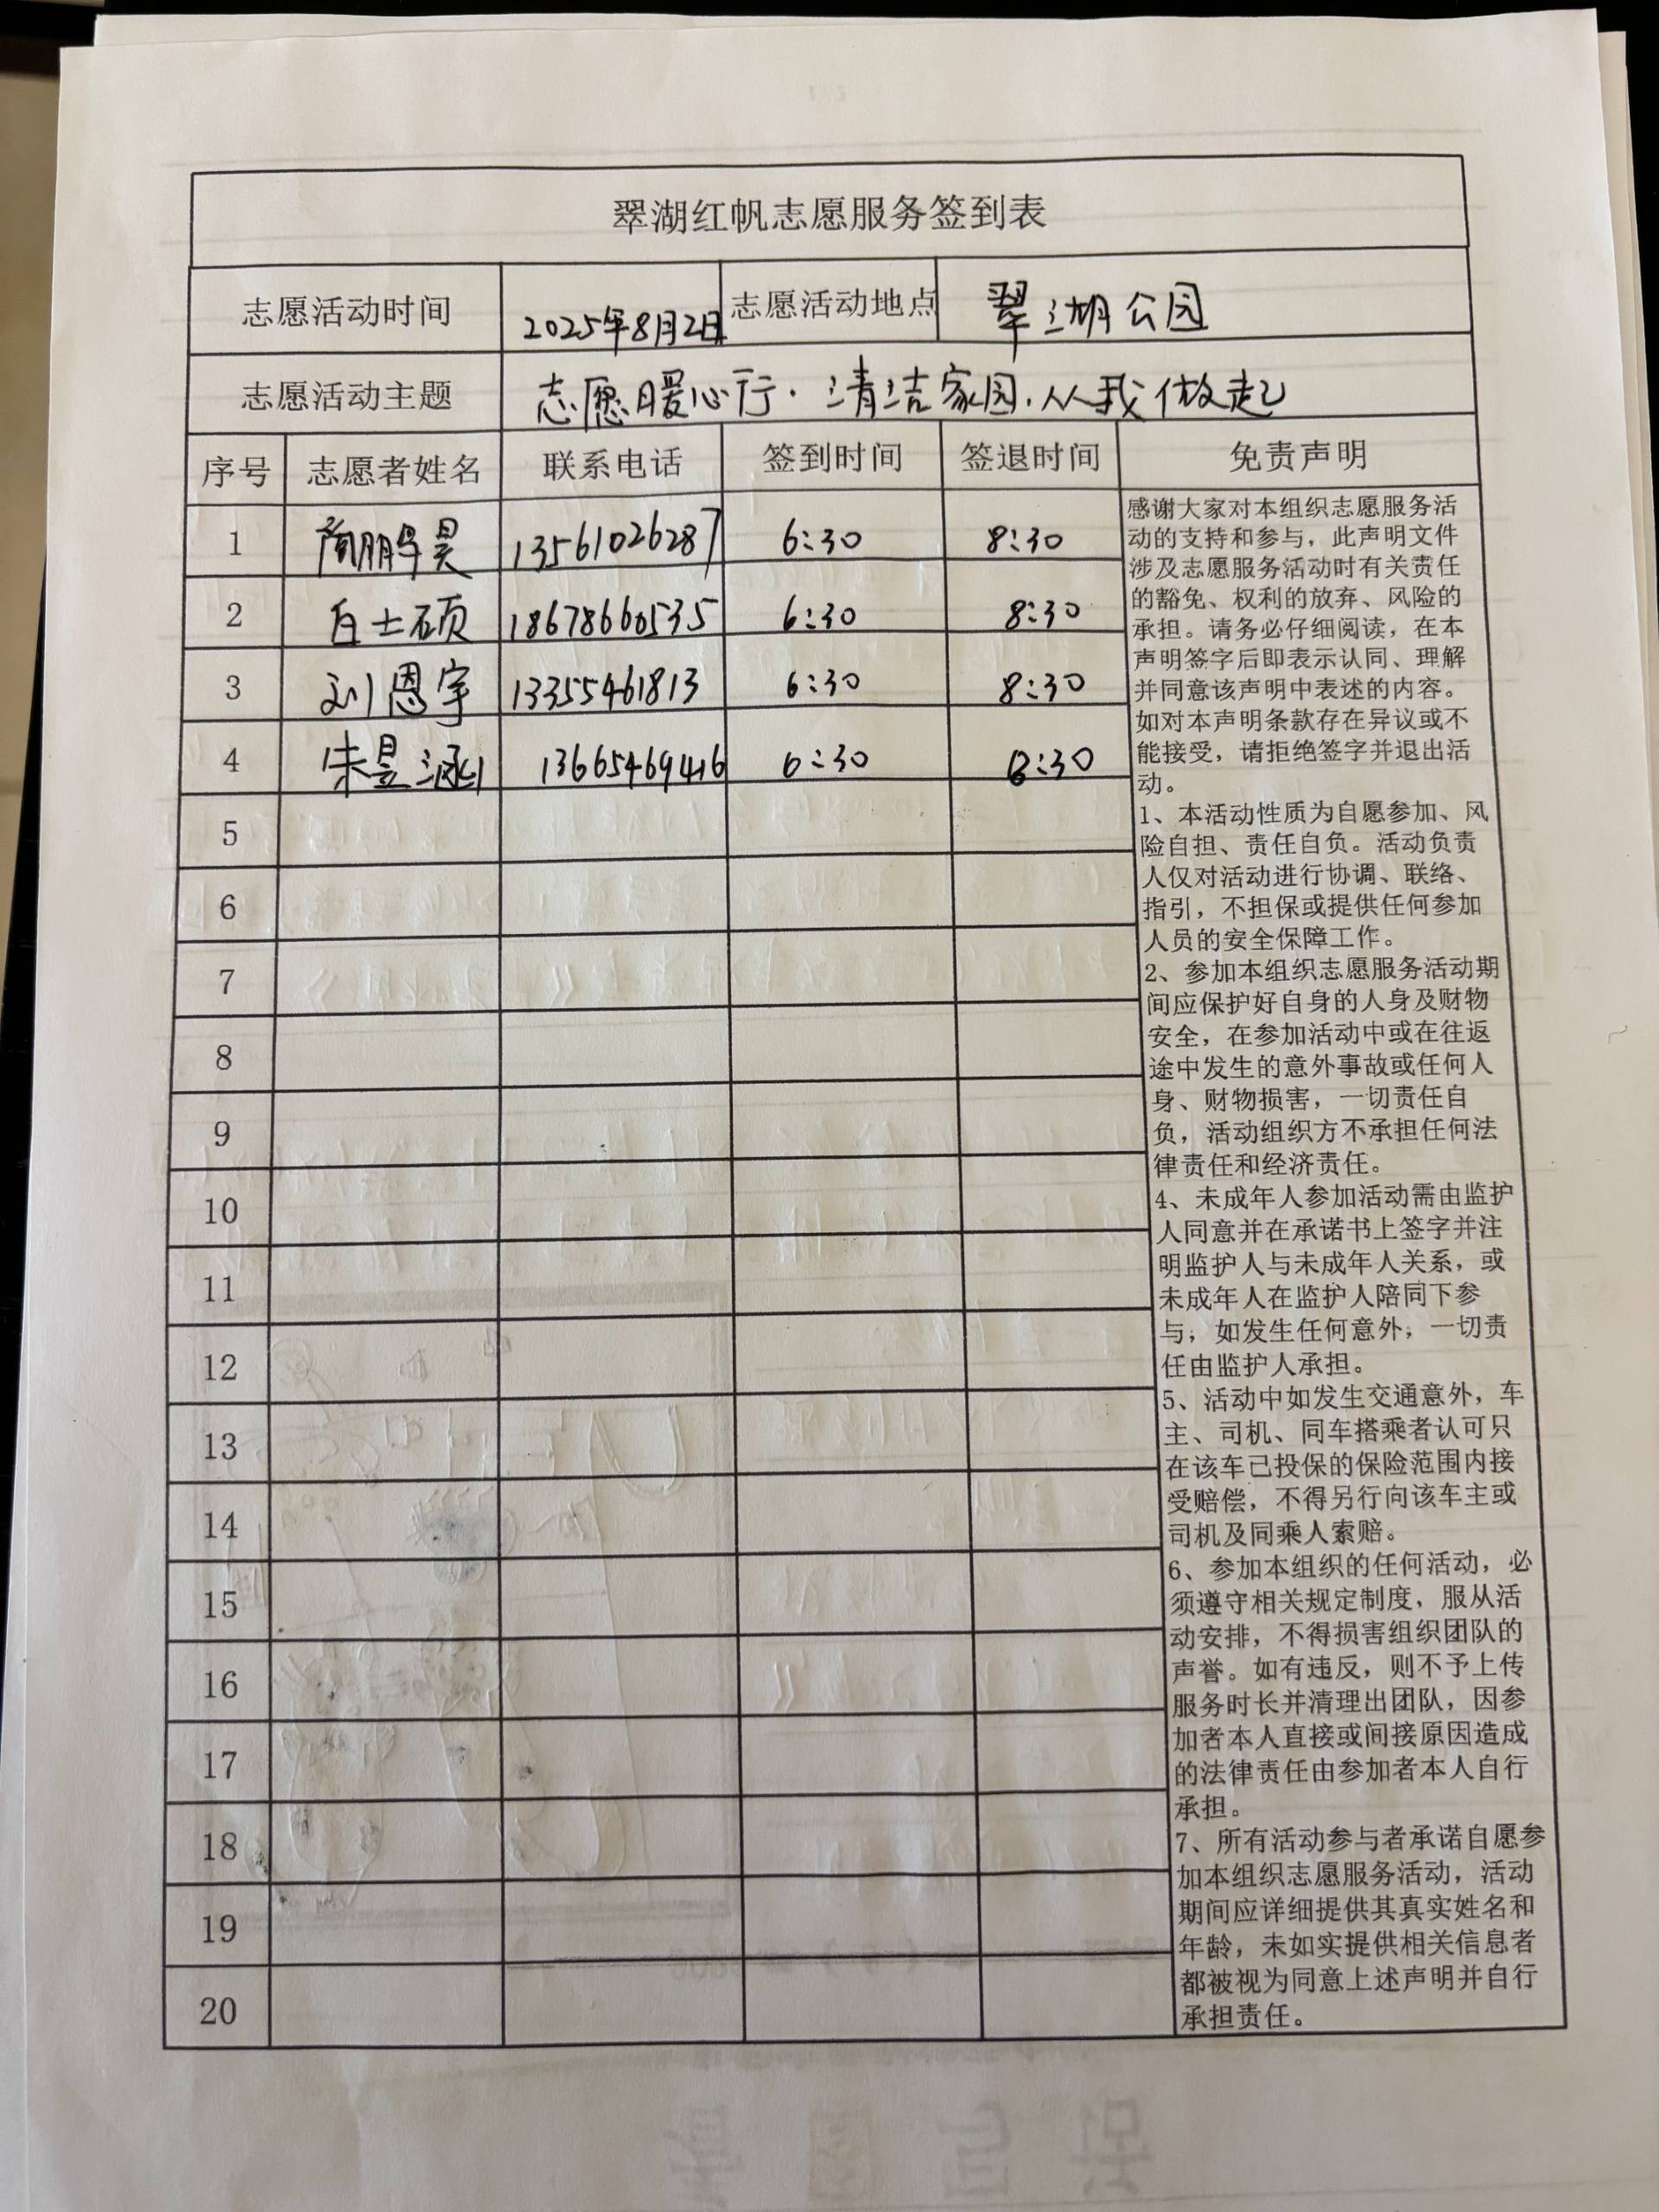 翠湖红帆志愿服务签到表
志愿活动时间 2025年8月2日 志愿活动地点 翠湖公园
志愿活动主题 志愿暖心行·清洁家园·从我做起
序号 志愿者姓名 联系电话 签到时间 签退时间 免责声明
1 13561026287 6:30 8:30
2 白士硕 18678660535 6:30 8:30
3 刘恩宇 13355461813 6:30 8:30
4 朱昱涵 13665469416 6:30 8:30
5
6
7
8
9
10
11
12
13
14
15
16
17
18
19
20
感谢大家对本组织志愿服务活
动的支持和参与，此声明文件
涉及志愿服务活动时有关责任
的豁免、权利的放弃、风险的
承担。请务必仔细阅读，在本
声明签字后即表示认同、理解
并同意该声明中表述的内容。
如对本声明条款存在异议或不
能接受，请拒绝签字并退出活
动。
1、本活动性质为自愿参加、风
险自担、责任自负。活动负责
人仅对活动进行协调、联络、
指引，不担保或提供任何参加
人员的安全保障工作。
2、参加本组织志愿服务活动期
间应保护好自身的人身及财物
安全，在参加活动中或在往返
途中发生的意外事故或任何人
身、财物损害，一切责任自
负，活动组织方不承担任何法
律责任和经济责任。
4、未成年人参加活动需由监护
人同意并在承诺书上签字并注
明监护人与未成年人关系，或
未成年人在监护人陪同下参
与；如发生任何意外，一切责
任由监护人承担。
5、活动中如发生交通意外，车
主、司机、同车搭乘者认可只
在该车已投保的保险范围内接
受赔偿，不得另行向该车主或
司机及同乘人索赔。
6、参加本组织的任何活动，必
须遵守相关规定制度，服从活
动安排，不得损害组织团队的
声誉。如有违反，则不予上传
服务时长并清理出团队，因参
加者本人直接或间接原因造成
的法律责任由参加者本人自行
承担。
7、所有活动参与者承诺自愿参
加本组织志愿服务活动，活动
期间应详细提供其真实姓名和
年龄，未如实提供相关信息者
都被视为同意上述声明并自行
承担责任。